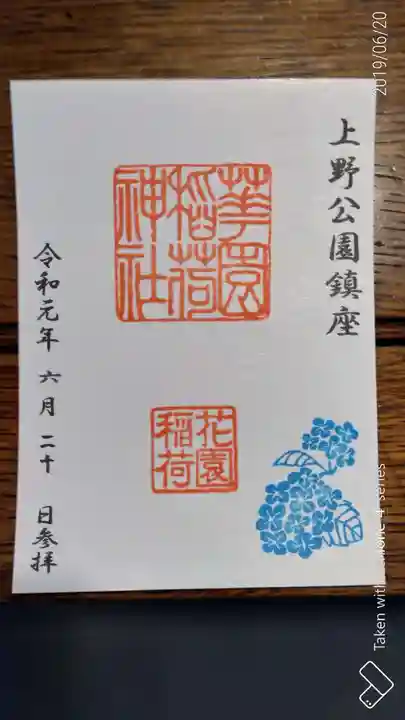 上野公園鎮座
華園
稲荷
神社
花園
稲荷
令和元年 六月 二十 日参拝
2019/06/20
Taken with
4 series